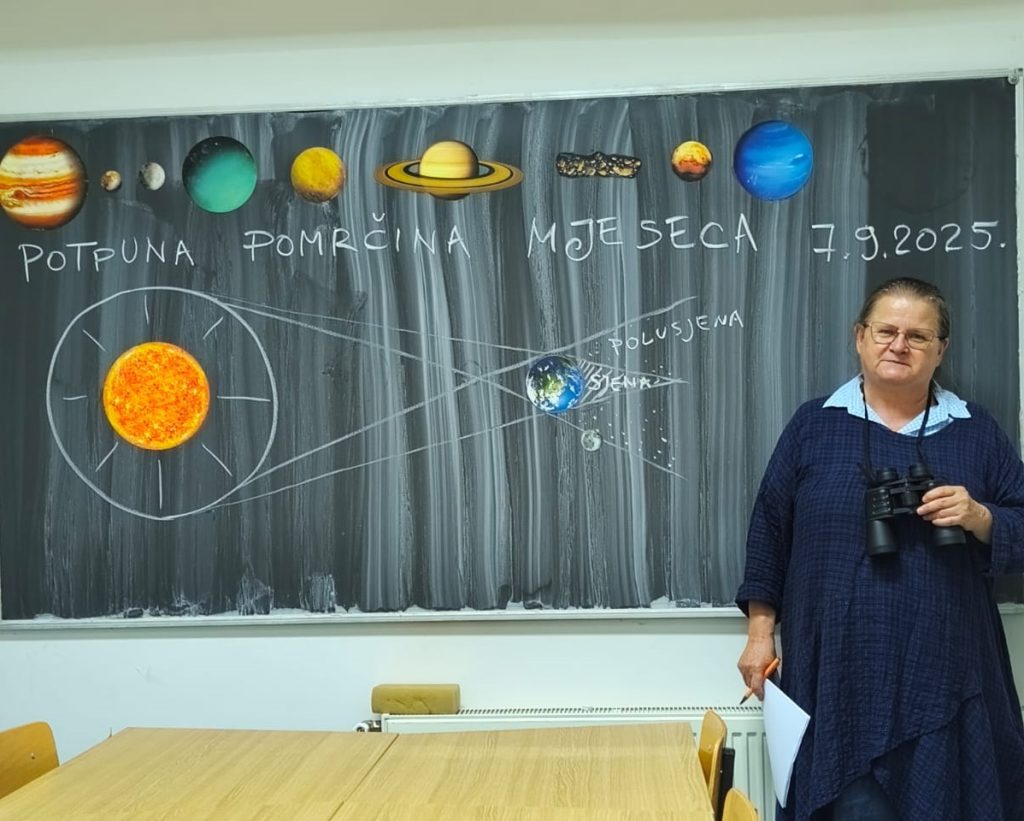 POTPUNA POMRČINA MJESECA 7.9.2025.
POLUSJENA
SJENA